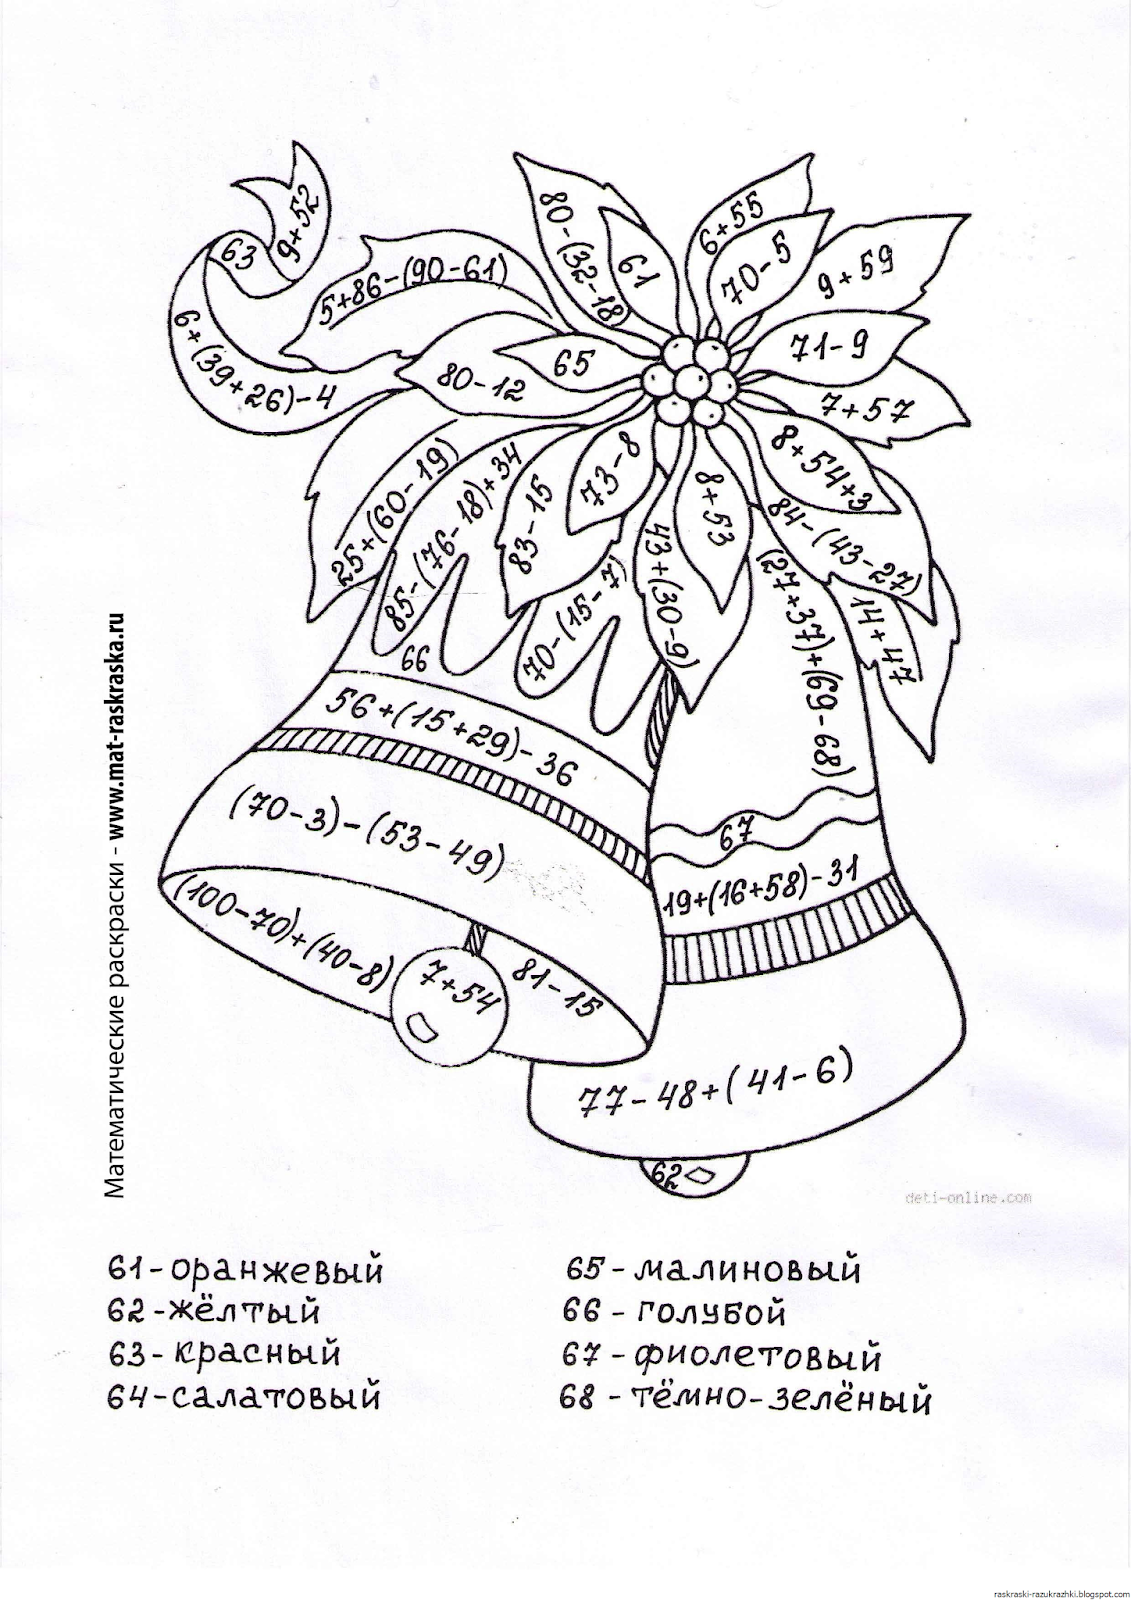 9+52
63
6+(39+26)-4
5+86-(90-61)
80-(32-18)
61
6+55
70-5
9+59
71-9
7+57
65
80-12
8+54+3
84-(43-27)
14+47
25+(60-19)
85-(76-18)+34
83-15
73-8
8+53
43+(30-9)
70-(15-7)
(27+37)+(69-68)
66
56+(15+29)-36
(70-3)-(53-49)
67
19+(16+58)-31
(100-70)+(40-8)
7+54
81-15
77-48+(41-6)
62
Математические раскраски - www.mat-raskraska.ru
deti-online.com
61-оранжевый
62-жёлтый
63-красный
64-салатовый
65-малиновый
66-голубой
67-фиолетовый
68-тёмно-зелёный
raskraski-razukrazhki.blogspot.com